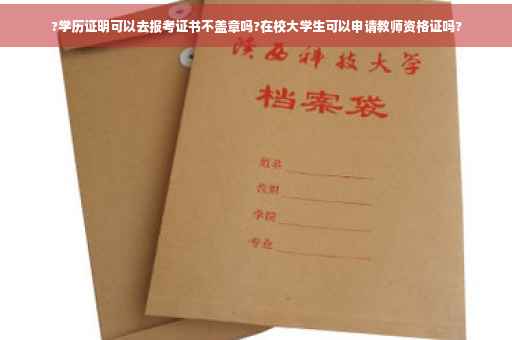 ?学历证明可以去报考证书不盖章吗?在校大学生可以申请教师资格证吗?
陕西科技大学
档案袋
姓名
性别
学院
专业